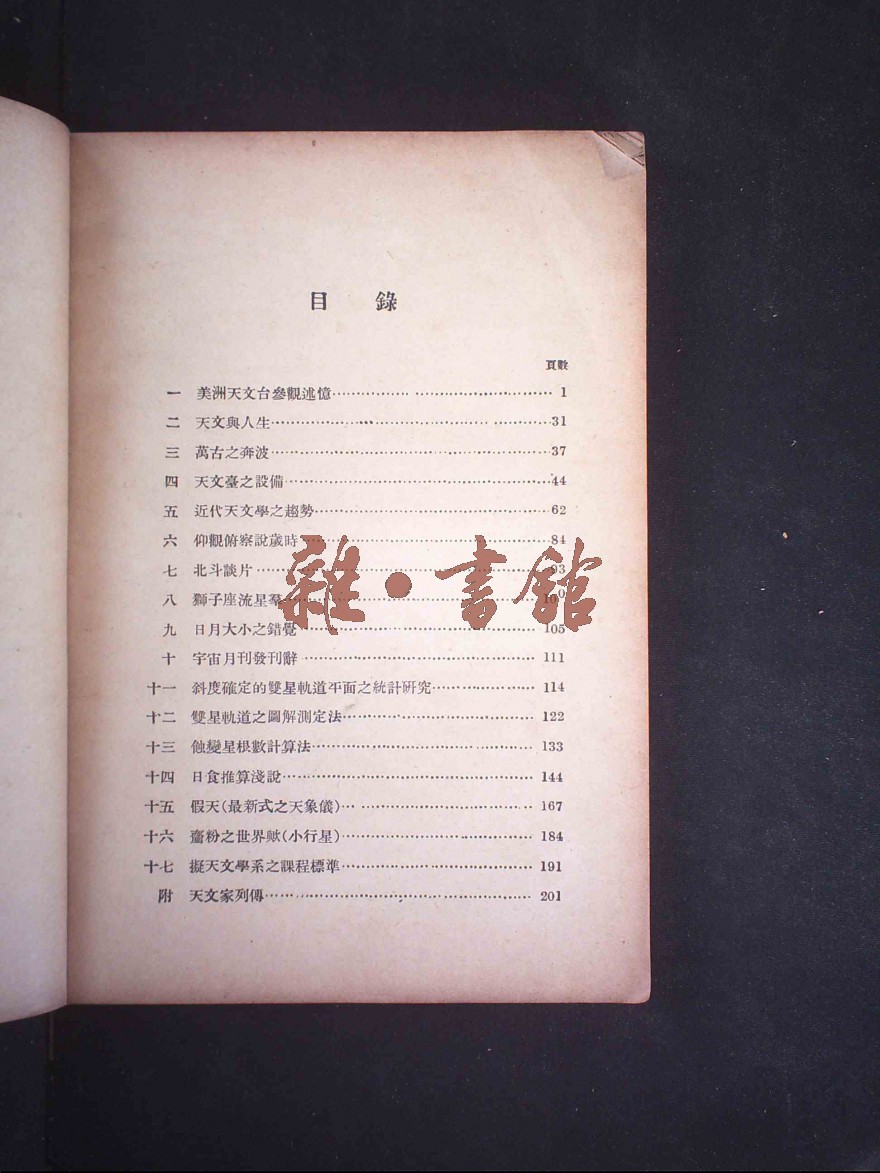 目錄
頁數
一 美洲天文台參觀述憶 1
二 天文與人生 31
三 萬古之奔波 37
四 天文臺之設備 44
五 近代天文學之趨勢 62
六 仰觀俯察說歲時 84
七 北斗談片 93
八 獅子座流星羣
九 日月大小之錯覺 105
十 宇宙月刊發刊辭 111
十一 斜度確定的雙星軌道平面之統計研究 114
十二 雙星軌道之圖解測定法 122
十三 蝕變星根數計算法 133
十四 日食推算淺說 144
十五 假天(最新式之天象儀) 167
十六 齏粉之世界歟(小行星) 184
十七 擬天文學系之課程標準 191
附 天文家列傳 201
雜·書館